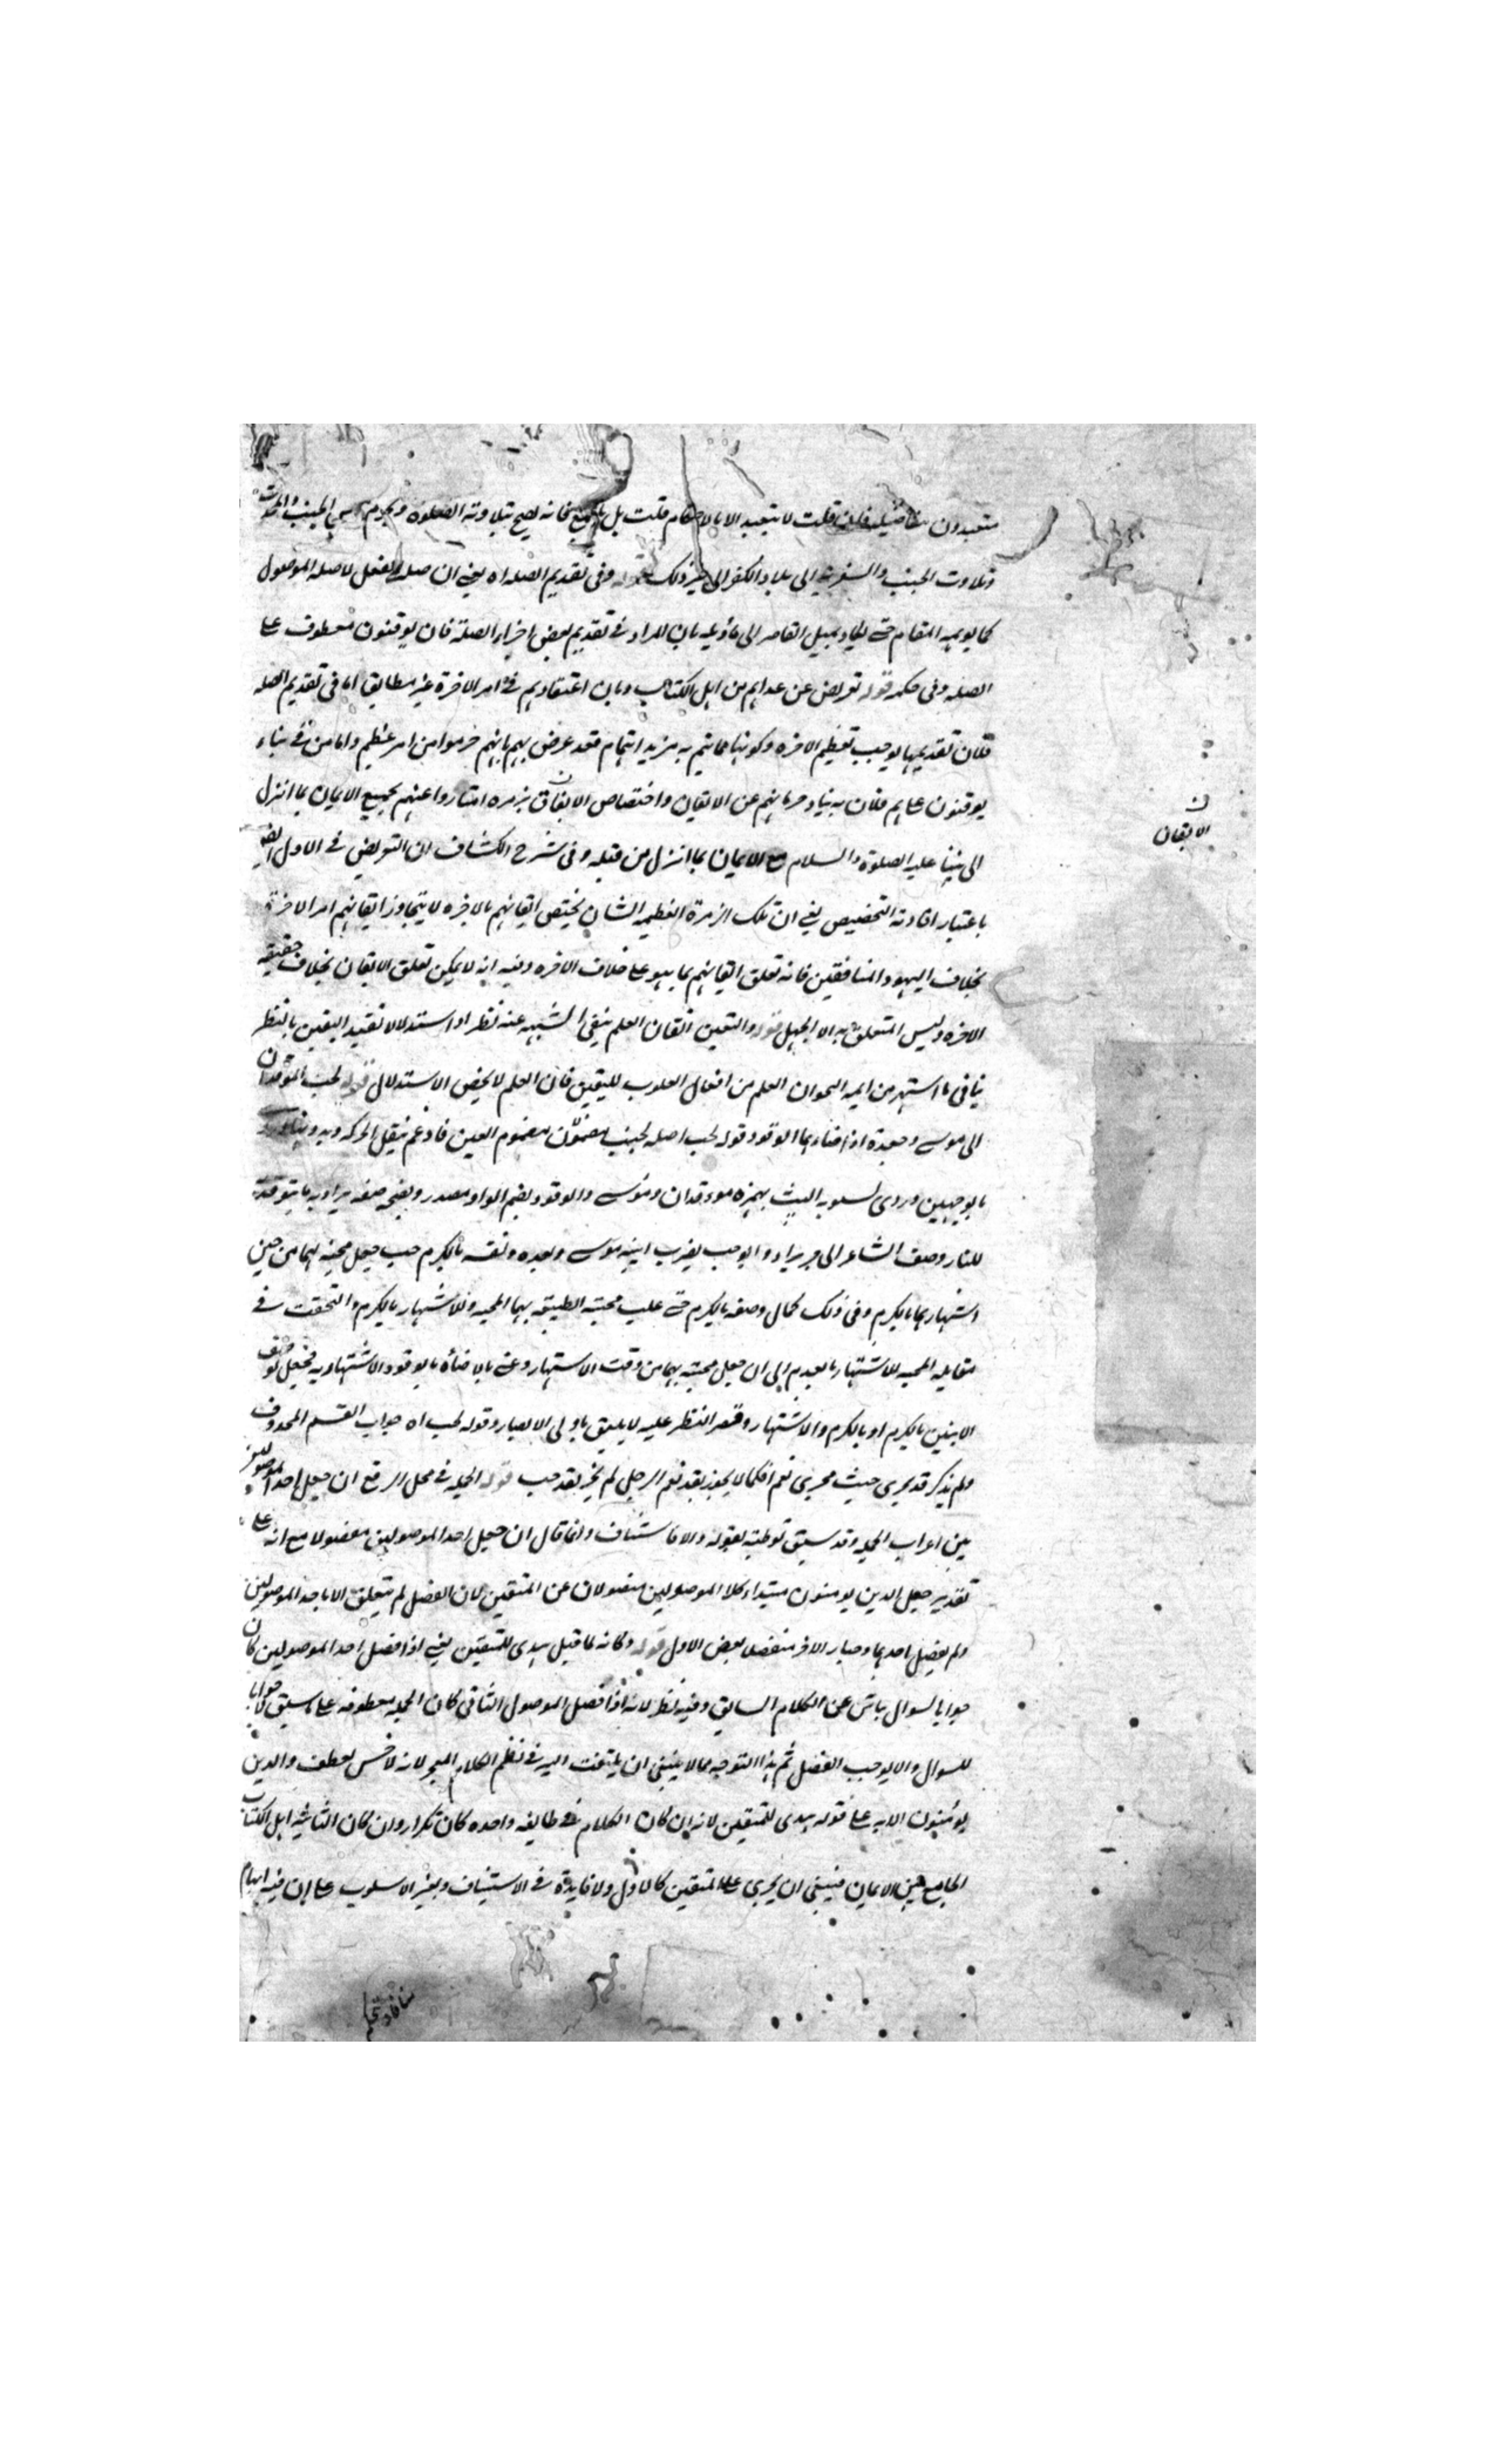 متعبدون بتفاصيله فان قلت لا يتعبد الا بالاحكام قلت بل بالجميع فانه يصح بتلاوته الصلوة ويحرم مس الجنب والمحدث
وتلاوت الجنب والسفر به الى بلاد الكفر الى غير ذلك قوله وفى تقديم الصله اه يعنى ان صلة الفعل لا صله الموصول
كما يوهمه المقام حتى يكاد يميل القاصر الى تأويله بان المراد فى تقديم بعض اجزاء الصلة فان يوقنون معطوف على
الصله وفى حكمه قوله تعريض عن عداهم من اهل الكتاب وبان اعتقادهم فى امر الاخرة غير مطابق اما فى تقديم الصله
فلان تقديمها يوجب تعظيم الاخره وكونها مما يهتم به مزيد اهتمام فقد عرض بهم بانهم حرموا من امر عظيم واما من فى بناء
يوقنون على هم فلان به بناء حرمانهم عن الايقان واختصاص الايقان بزمره امتازوا عنهم بجميع الايمان بما انزل
الى نبينا عليه الصلوة والسلام مع الايمان بما انزل من قبله وفى شرح الكشاف ان التعريض فى الاول ايضا
باعتبار افادته التخصيص يعنى ان تلك الزمرة العظيمه الشان يختص ايقانهم بالاخره لا يتجاوز ايقانهم امر الاخرة
بخلاف اليهود والمنافقين فانه تعلق ايقانهم بما هو على خلاف الاخره وفيه انه لا يمكن تعلق الايقان بخلاف حقيقه
الاخره وليس المتعلق به الا الجهل قوله واليقين اتقان العلم بنفى الشبهه عنه نظرا واستدلالا تقييد اليقين بالنظر
ينافى ما اشتهر من ايمه النحو ان العلم من افعال القلوب لليقين فان العلم لا يخص الاستدلال قوله لحب الموقدان
الى موسى وجعدة اذ اضاءهما الوقود قوله لحب اصله لحبب مضموم العين فادغم بنقل الحركه وبدونها
بالوجهين وروى سيبويه البيت بهمزه موءقدان ومؤسى والوقود بضم الواو مصدر وبفتحه صفه يراد به ما يتوقد
للنار وصف الشاعر ابنيه موسى وجعده ونفسه بالكرم حيث جعل محبته لهما من حين
اشتهارهما بالكرم وفى ذلك كمال وصفه بالكرم حتى غلب محبته الطبيعيه بهما المحبه وللاشتهار بالكرم والتحقت فى
مقابله المحبه للاشتهار بالعدم الى ان جعل محبته بهما من وقت الاشتهار وعنى بالاضأة بالوقود الاشتهار به فجعل توصيف
الابنين بالكرم او بالكرم والاشتهار وقصر النظر عليه لا يليق باولى الابصار وقوله لحب اه جواب القسم المحذوف
ولم يذكر قد يجرى حيث مجرى نعم فكما لا يجوز بقد نعم الرجل لم يجز بقد حب قوله الجمله فى محل الرفع ان جعل احد الموصولين
بين اعراب الجمله وقد سبق توطيته بقوله والا فاستيناف وانما قال ان جعل احد الموصولين مفصولا مع انه على
تقدير جعل الذين يومنون مبتداء كلا الموصولين مفصولان عن المتقين لان الفصل لم يتعلق الا باحد الموصولين
ولم يفصل احدهما وصار الاخر منفصلا بفصل الاول قوله وكانه لما قيل هدى للمتقين يعنى اذا فصل احد الموصولين كان
جوابا لسوال ناش عن الكلام السابق وفيه نظر لانه اذا فصل الموصول الثانى كان الجمله معطوفه على ما سبق لا جوابا
للسوال والا يوجب الفصل ثم هذا التوجيه مما لا ينبغى ان يلتفت اليه فى نظم الكلام المعجز لانه لا حسن لعطف والذين
يؤمنون الايه على قوله هدى للمتقين لانه ان كان الكلام فى طايفه واحده كان تكرارا وان كان الثانى فى اهل الكتاب
الجامع بين الايمان فينبغى ان يجرى على المتقين كالاول ولا فايدة فى الاستيناف وتغيير الاسلوب على ان فيه ايهام
ن
الايقان